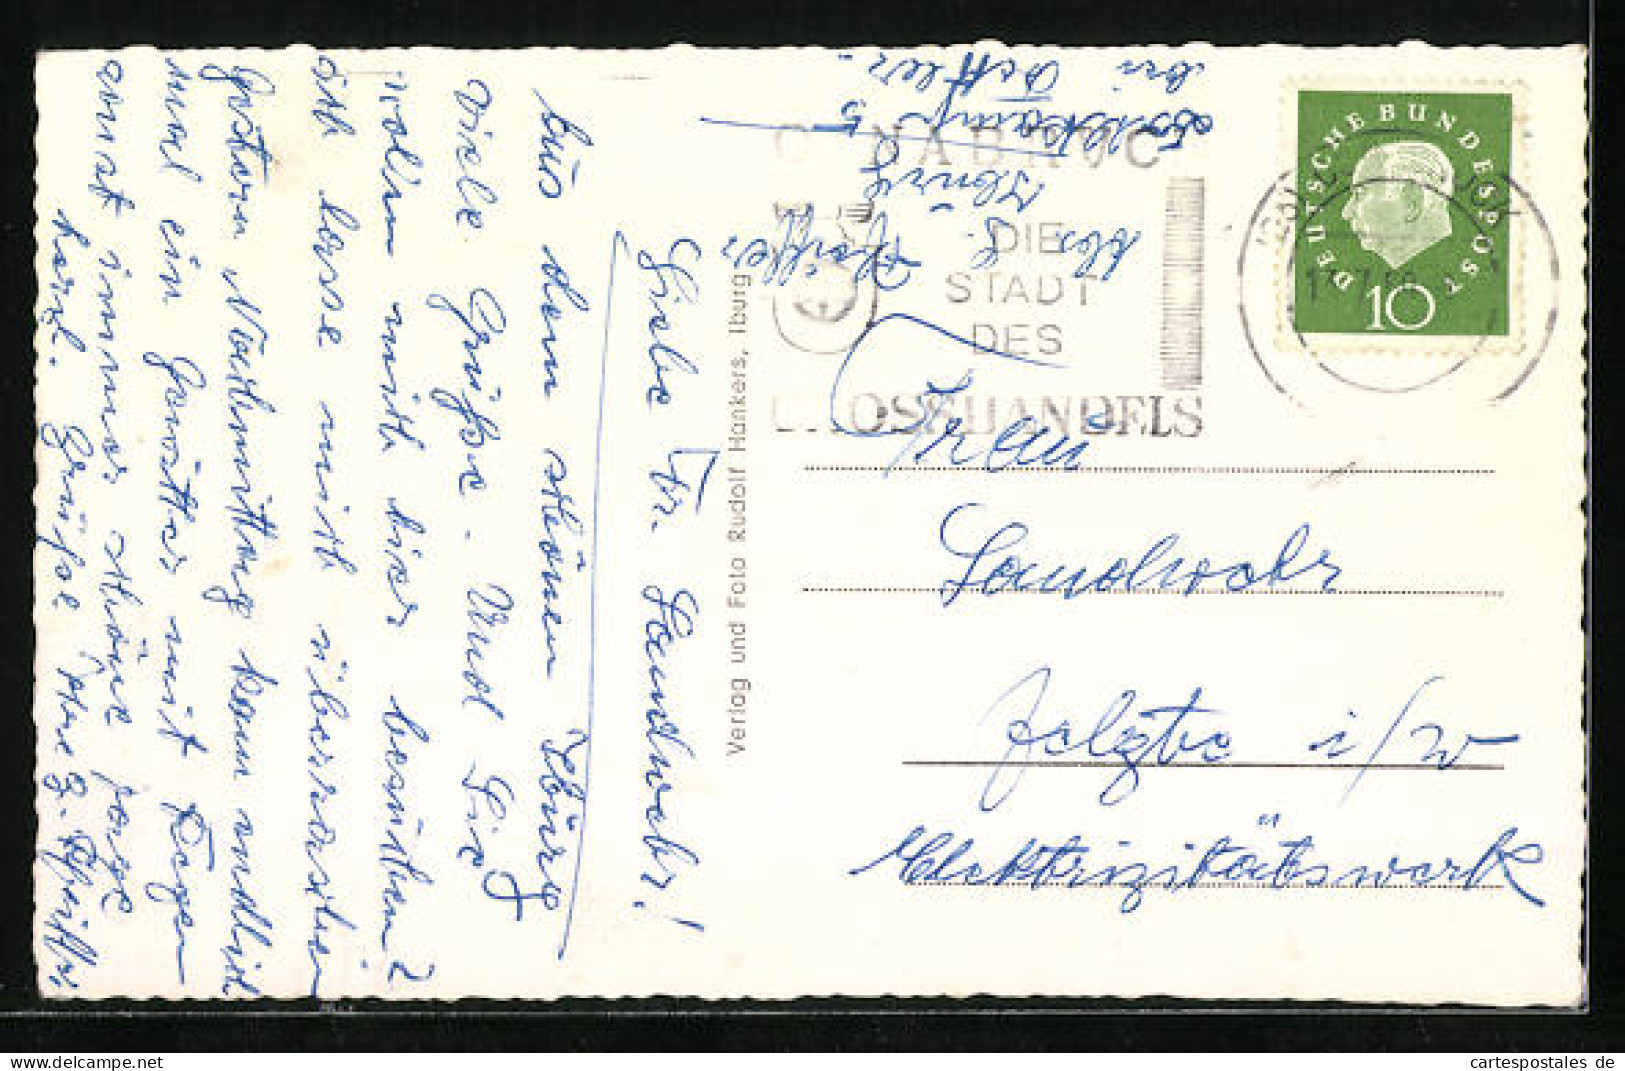 Liebe Fr. Landwehr!
Aus dem schönen Iburg
viele Grüße. Und Sie
wollen mich hier besuchen?
Ich lasse mich überraschen
Gestern Nachmittag kam endlich
mal ein Gewitter mit Regen
sonst immer schöne Tage
herzl. Grüße Ihre
Verlag und Foto Rudolf Hankers, Iburg
bei
5
Iburg
DIE
STADT
DES
GROSSHANDELS
DEUTSCHE BUNDESPOST
10
Frau
Landwehr
Telgte i/W
Elektrizitätswerk
cartespostales de